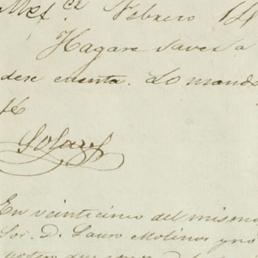 Mex.co Febrero 14
Hagase saver a
dese cuenta. Lo mando
En veinticinco del mismo
Sor. D. Lauro Molinos y no